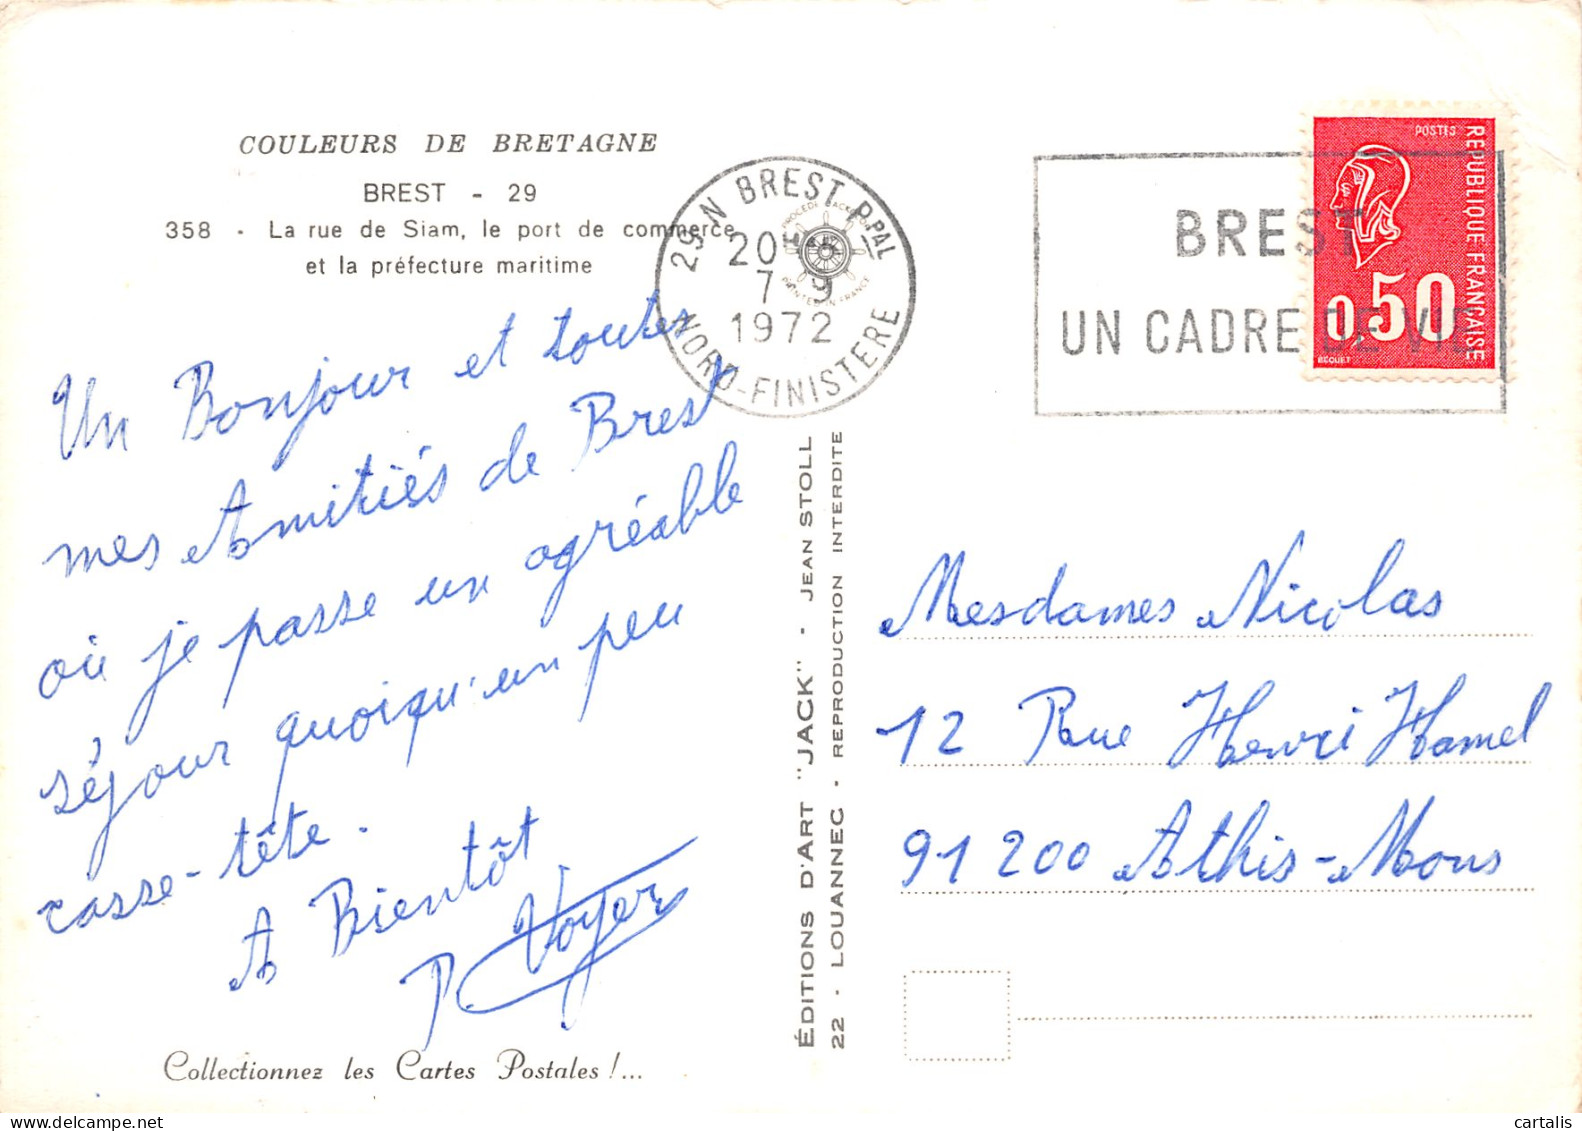 COULEURS DE BRETAGNE
BREST - 29
358 - La rue de Siam, le port de commerce
et la préfecture maritime
Un Bonjour et toutes
mes Amitiés de Brest
où je passe un agréable
séjour quoiqu'un peu
casse-tête.
A Bientôt
P. Voyer
Collectionnez les Cartes Postales !...
ÉDITIONS D'ART "JACK" - JEAN STOLL
22 - LOUANNEC - REPRODUCTION INTERDITE
29 N BREST PPAL
20 H
7 9
1972
NORD-FINISTERE
BREST
UN CADRE DE VIE
POSTES
REPUBLIQUE FRANÇAISE
0,50
BEQUET
Mesdames Nicolas
12 Rue Henri Hamel
91200 Athis-Mons
cartalis